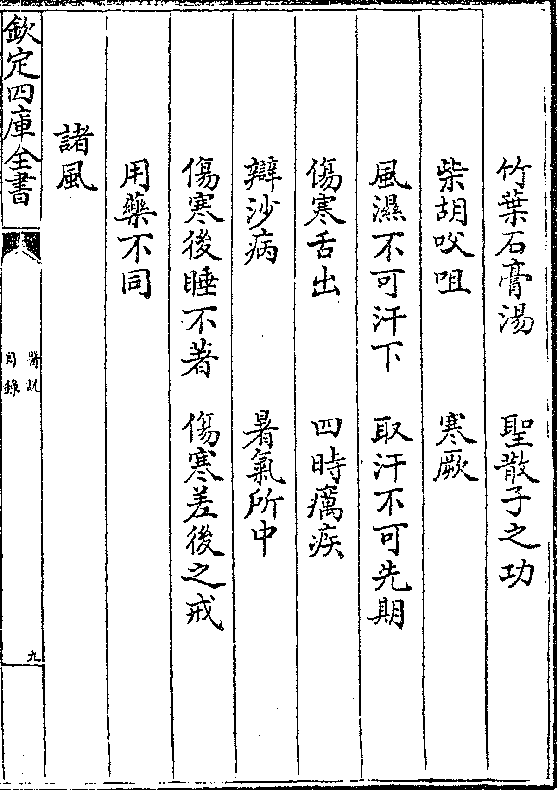 竹葉石膏湯　聖散子之功
柴胡㕮咀　寒厥
風濕不可汗下　取汗不可先期
傷寒舌出　四時癘疾
辯沙病　暑氣所中
傷寒後睡不著　傷寒差後之戒
用藥不同
諸風
欽定四庫全書
醫説
目錄
九